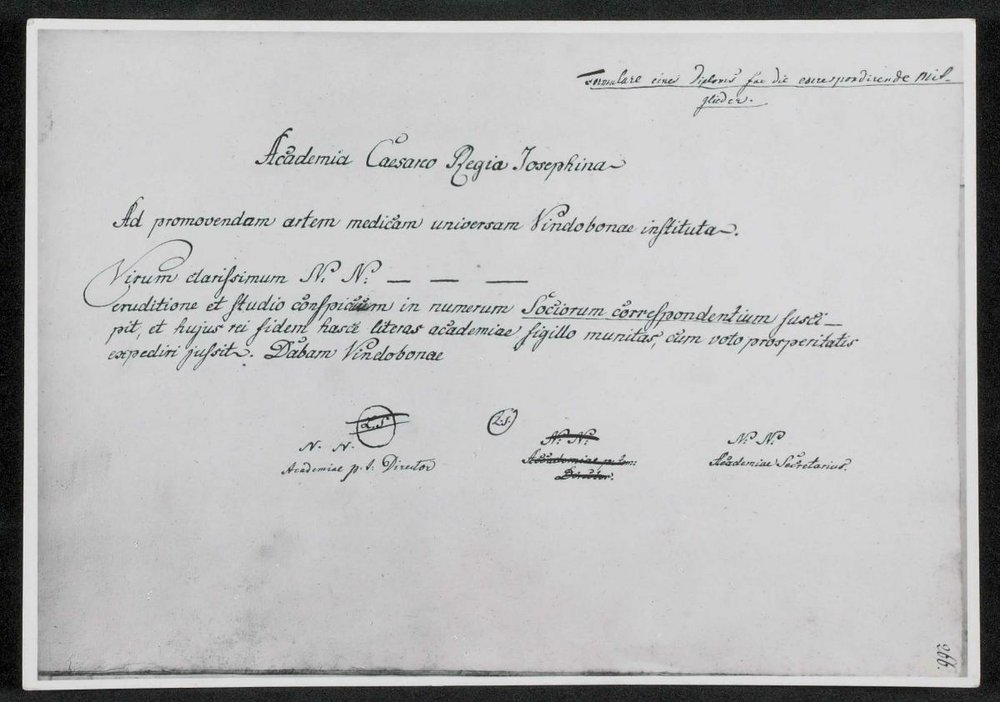 Formulare eines Diploms für die correspondirende Mit-
glieder.
Academia Caesareo Regia Josephina
Ad promovendam artem medicam universam Vindobonae instituta.
Virum clarissimum N. N. — — —
eruditione et studio conspicuum in numerum Sociorum correspondentium susci-
pit, et hujus rei fidem hasce literas academiae sigillo munitas, cum voto prosperitatis
expediri jussit. Dabam Vindobonae
L.S. L.S.
N. N. N. N. N. N.
Academiae p. t. Director Academiae Secretarius.
Director.
266.